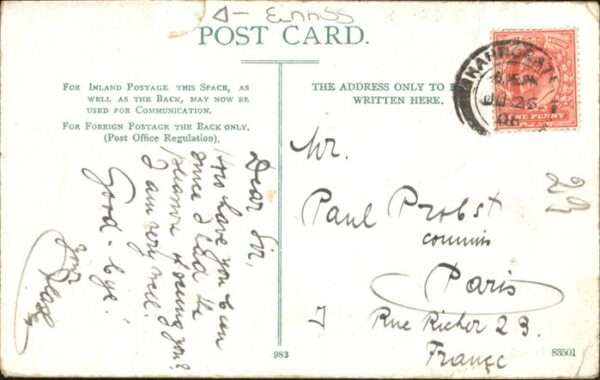 POST CARD.
FOR INLAND POSTAGE THIS SPACE, AS
WELL AS THE BACK, MAY NOW BE
USED FOR COMMUNICATION.
FOR FOREIGN POSTAGE THE BACK ONLY,
(Post Office Regulation).
THE ADDRESS ONLY TO
WRITTEN HERE.
Dear Sir,
How have you been
since I had the
pleasure of seeing you?
I am very well.
Good-bye!
Mr.
Paul Probst
commis
Paris
7 Rue Richer 23.
France
29
983
83501
ONE PENNY